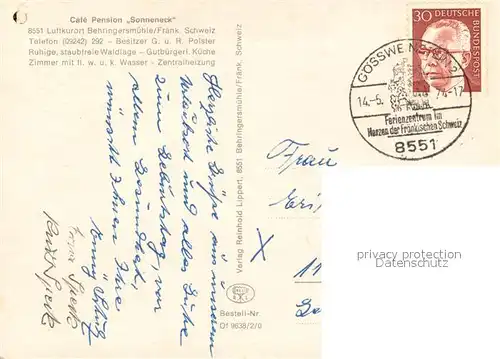 Café Pension „Sonneneck"
8551 Luftkurort Behringersmühle/Fränk. Schweiz
Telefon (09242) 292 - Besitzer G. u. R. Polster
Ruhige, staubfreie Waldlage - Gutbürgerl. Küche
Zimmer mit fl. w. u. k. Wasser - Zentralheizung
Herzliche Grüße aus unserem
Urlaubsort und alles Gute
zum Geburtstag, vor
allem Gesundheit,
wünscht Ihnen Ihre
Verlag Reinhold Lippert, 8551 Behringersmühle/Fränk. Schweiz
Bestell-Nr.
Of 9638/2/0
30 DEUTSCHE
BUNDESPOST
GÖSSWEINSTEIN
14.-5. 74-17
Ferienzentrum im
Herzen der Fränkischen Schweiz
8551
Frau
X
privacy protection
watermark